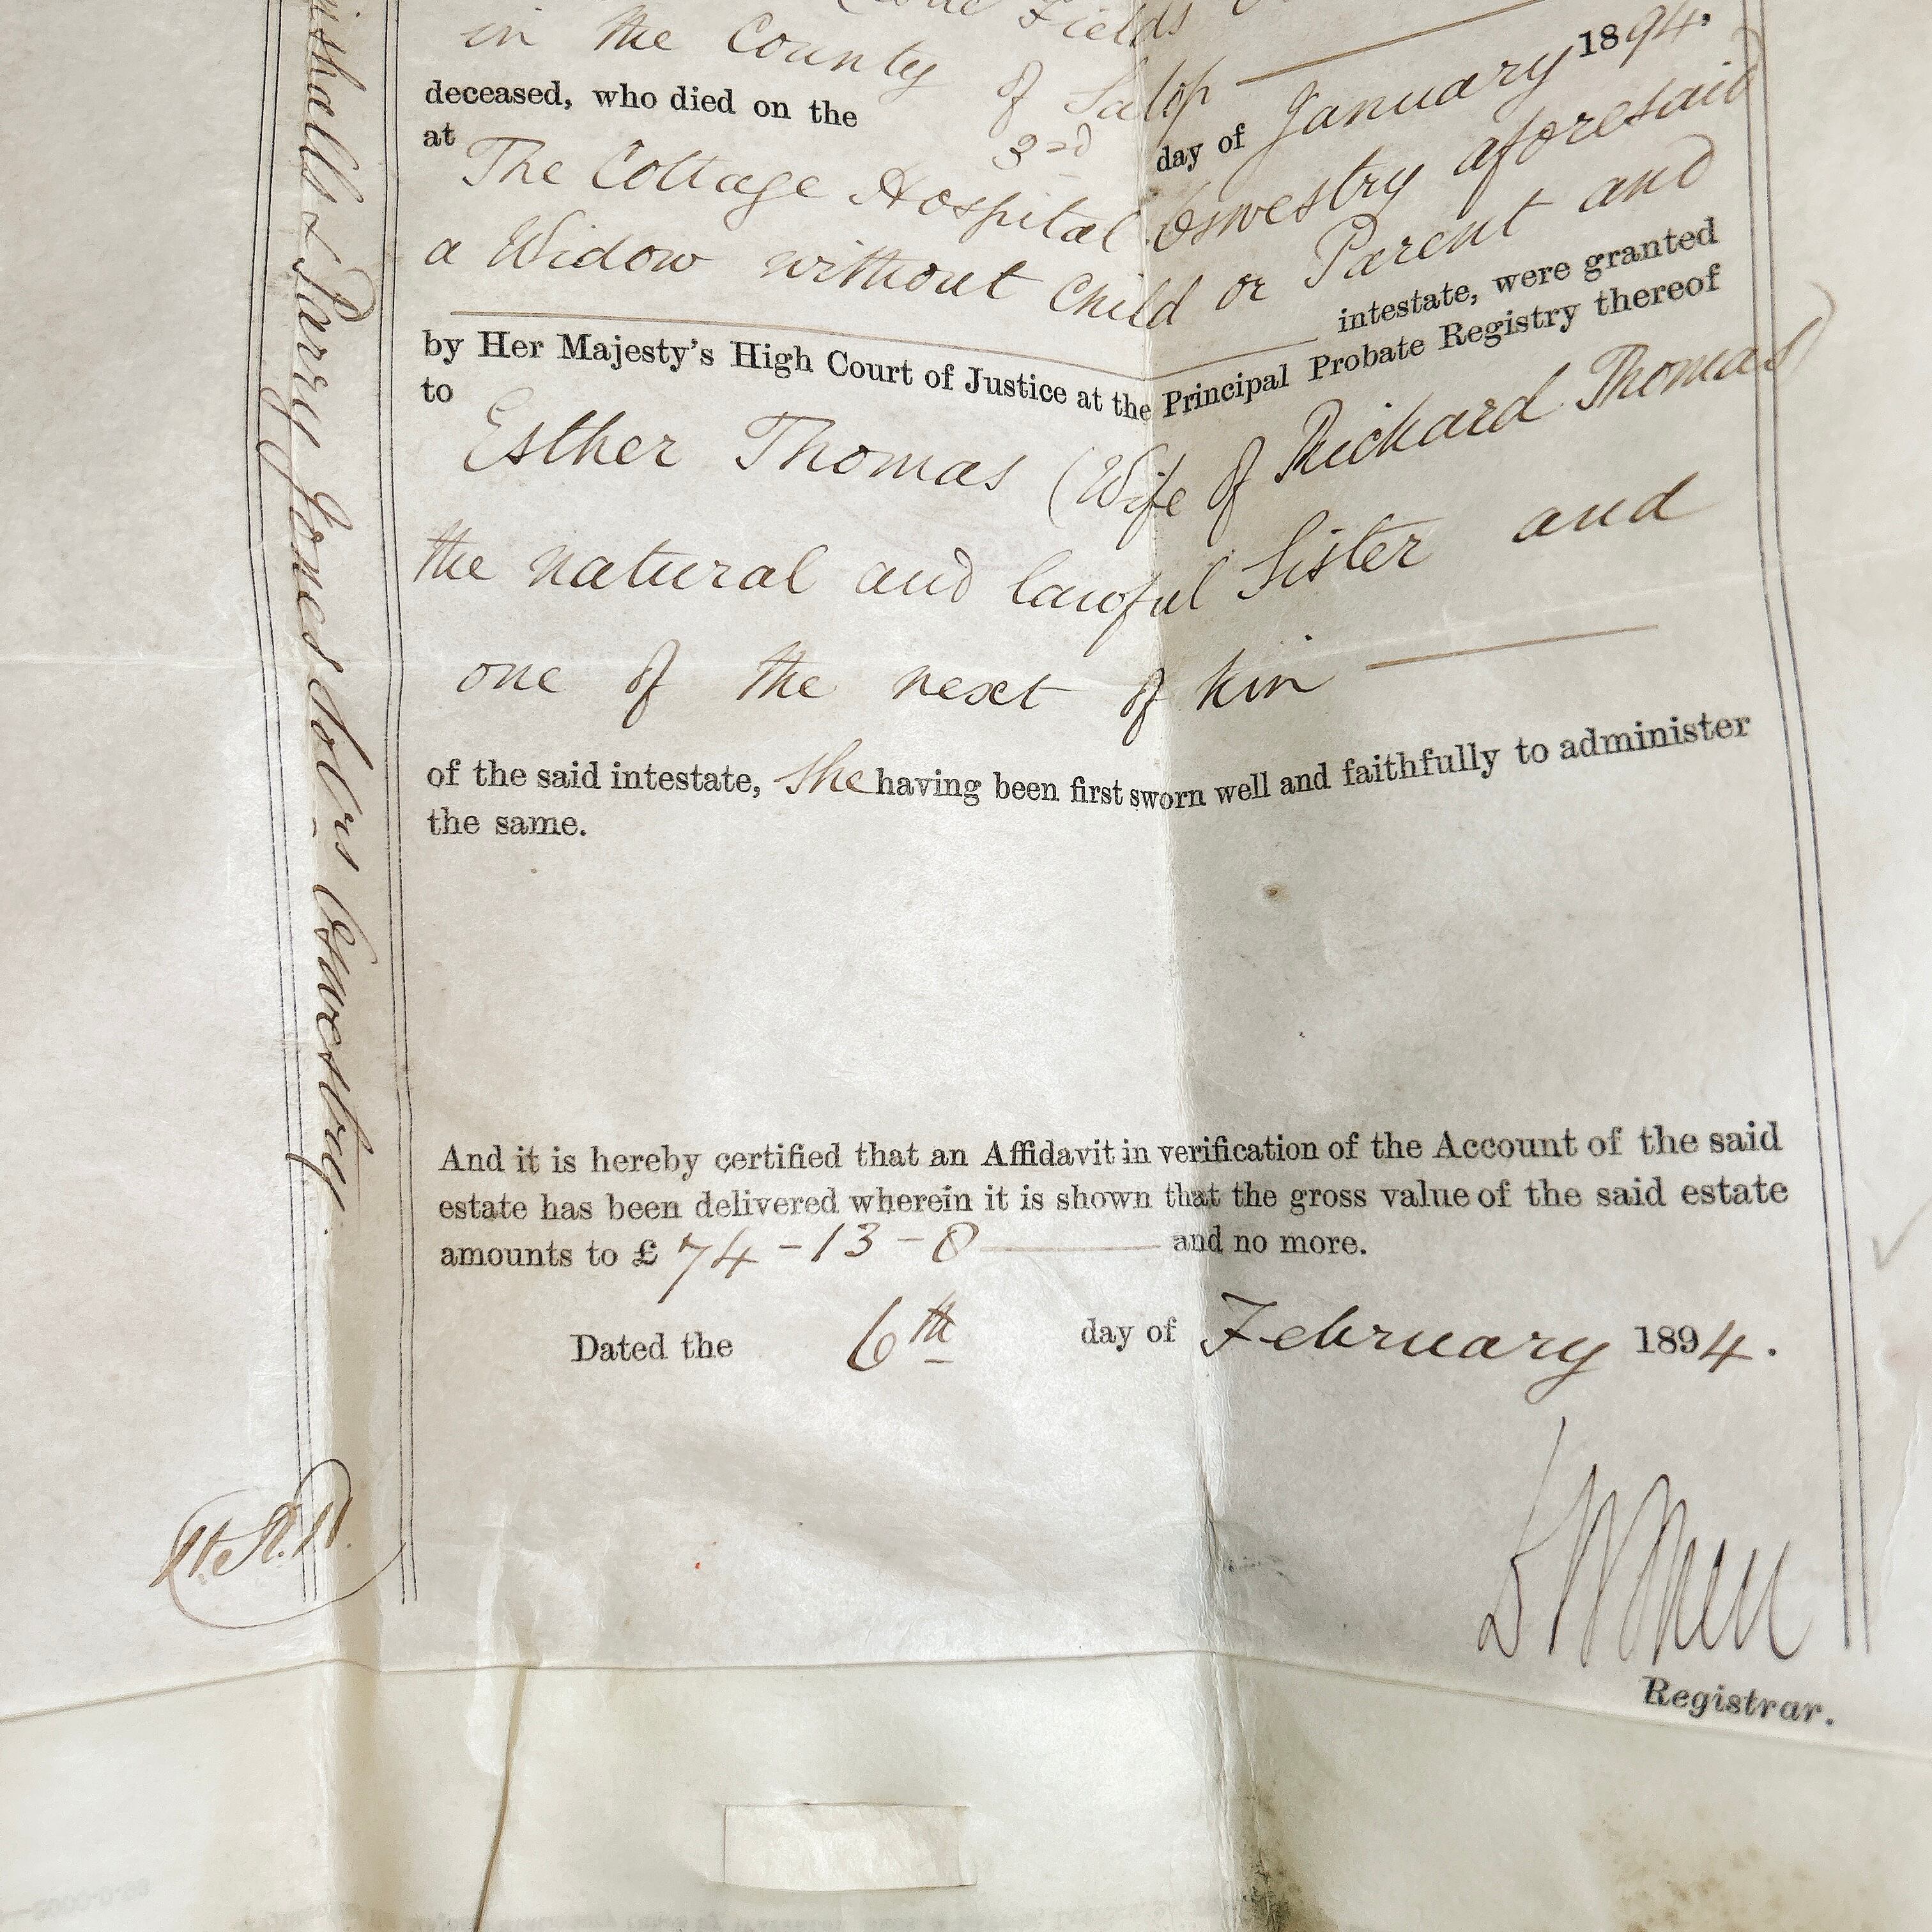 Fields
in the County of Salop
deceased, who died on the 3rd day of January 1894.
at The Cottage Hospital Oswestry aforesaid
a Widow without Child or Parent and
intestate, were granted
by Her Majesty's High Court of Justice at the Principal Probate Registry thereof
to Esther Thomas (Wife of Richard Thomas)
the natural and lawful Sister and
one of the next of kin
of the said intestate, She having been first sworn well and faithfully to administer
the same.
And it is hereby certified that an Affidavit in verification of the Account of the said
estate has been delivered wherein it is shown that the gross value of the said estate
amounts to £ 74-13-8 and no more.
Dated the 6th day of February 1894.
Registrar.
& Parry Jones Solrs Oswestry.